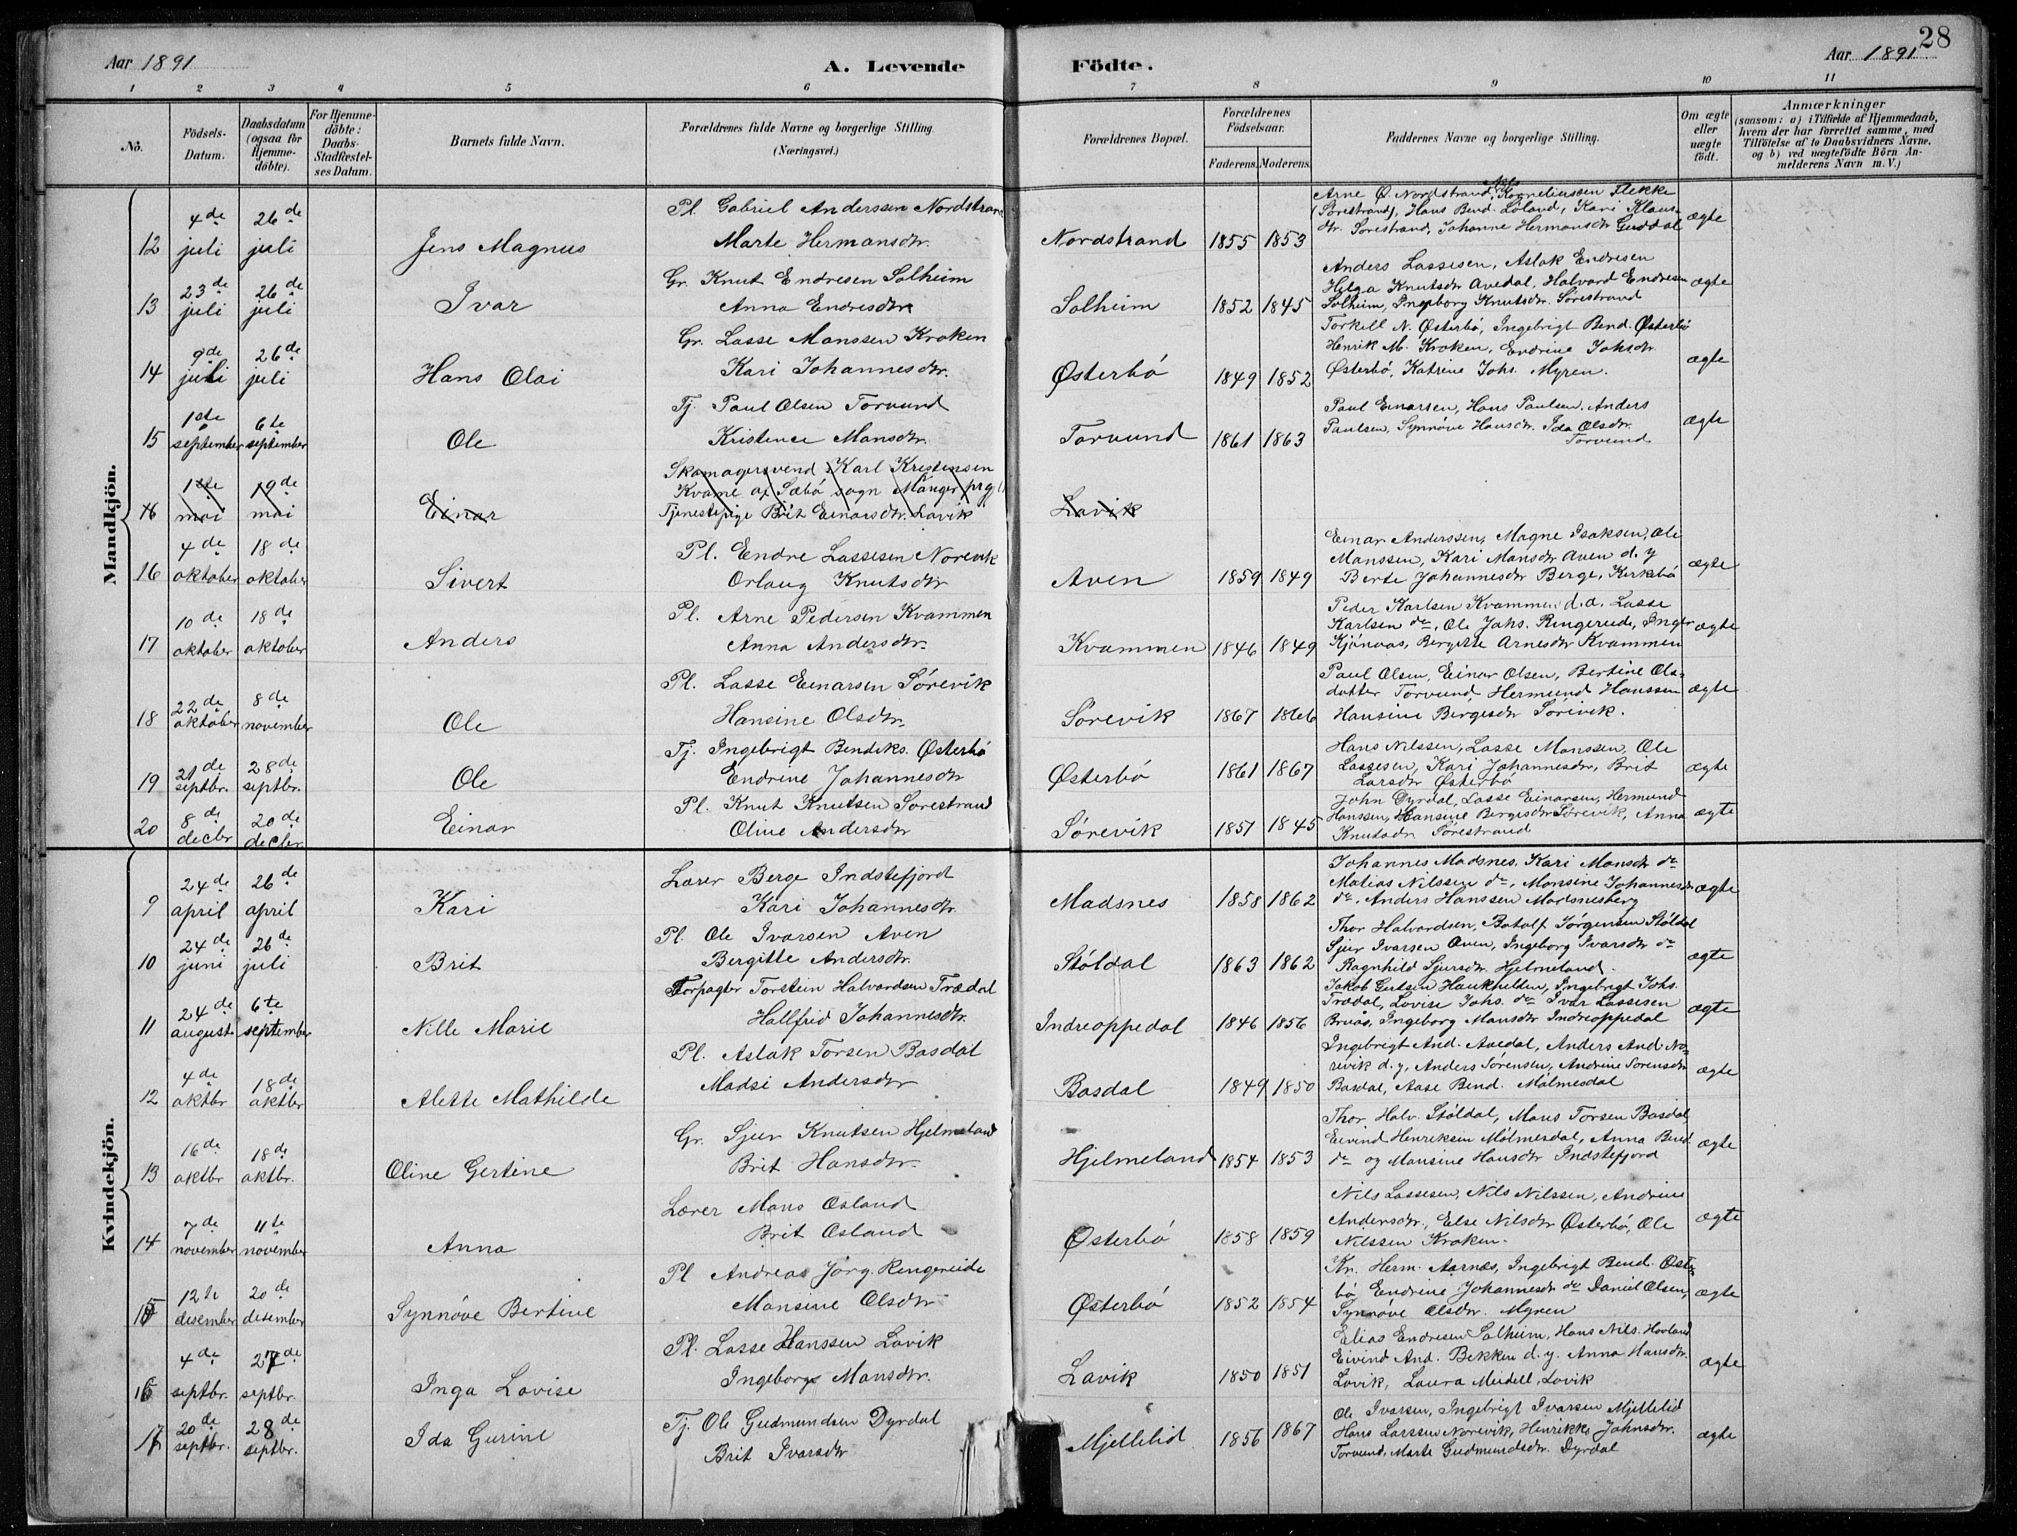 28
Aar 1891
A. Levende Födte.
Aar 1891
1 2 3 4 5 6 7 8 9 10 11
No.
Födsels-Datum.
Daabsdatum (ogsaa for Hjemmedöbte).
For Hjemmedöbte: Daabs-Stadfestelses Datum.
Barnets fulde Navn.
Forældrenes fulde Navne og borgerlige Stilling. (Næringsvei.)
Forældrenes Bopæl.
Forældrenes Födselsaar.
Faderens. Moderens.
Faddernes Navne og borgerlige Stilling.
Om ægte eller uægte födt.
Anmærkninger
(saasom: a) i Tilfælde af Hjemmedaab, hvem der har forrettet samme, med Tilföielse af to Daabsvidners Navne, og b) ved uægtefödte Börn Anmelderens Navn m. V.)
Mandkjön.
12 4de juli 26de juli Jens Magnus Pl. Gabriel Anderssen Nordstrand Marte Hermansdtr. Nordstrand 1855 1853
Arne Ø. Nordstrand, Nils Korneliussen Flekke
(Sørestrand), Hans Bend. Løland, Kari Klaus-
dtr. Sørestrand, Johanne Hermansdtr Guddal ægte
13 23de juli 26de juli Ivar Gr. Knut Endresen Solheim Anna Endresdtr. Solheim 1852 1845
Anders Lassesen, Aslak Endresen
Helga Knutsdtr Avedal, Halvard Endresen
Solheim, Ingeborg Knutsdtr. Sørestrand ægte
14 9de juli 26de juli Hans Olai Gr. Lasse Monssen Kroken Kari Johannesdtr. Østerbø 1849 1852
Torkell N. Østerbø, Ingebrigt Bend. Østerbø
Henrik M. Kroken, Endrine Johsdtr.
Østerbø, Katrine Johs. Myren. ægte
15 1ste september 6te september Ole Tj. Paul Olsen Torvund Kristence Monsdtr. Torvund 1861 1863
Paul Einarsen, Hans Paulsen, Anders
Paulsen, Synnøve Hansdtr. Ida Olsdtr.
Torvund ægte
16 1ste mai 19de mai Einar Skomagersvend Karl Kristensen
Kvame af Sæbø sogn Manger prgj.
Tjenestepige Brit Einarsdtr. Lavik Lavik
16 4de oktober 18de oktober Sivert Pl. Endre Lassesen Norevik Orlaug Knutsdtr Aven 1859 1849
Einar Anderssen, Magne Isaksen, Ole
Monssen, Kari Monsdtr Aven d. y
Berte Johannesdtr Berge, Kirkebø ægte
17 10de oktober 18de oktober Anders Pl. Arne Pedersen Kvammen Anna Andersdtr. Kvammen 1846 1849
Peder Karlsen Kvammen d.a. Lasse
Karlsen do, Ole Johs. Ringereide, Inger
Kjönaas, Bergitte Arnesdtr Kvammen ægte
18 22de oktober 8de november Ole Pl. Lasse Einarsen Sörevik Hansine Olsdtr. Sörevik 1867 1866
Paul Olsen, Einar Olsen, Bertine Ols-
datter Torvund Hermund Hanssen
Hansine Bergesdtr Sörevik. ægte
19 21de septbr. 28de septbr. Ole Tj. Ingebrigt Bendiks. Østerbö Endrine Johannesdtr Østerbö 1861 1867
Hans Nilssen, Lasse Monssen, Ole
Lassesen, Kari Johannesdtr, Brit
Larsdtr Østerbö ægte
20 8de decbr 20de decbr. Einar Pl. Knut Knutsen Sørestrand Oline Andersdtr Sørevik 1851 1845
John Dyrdal, Lasse Einarsen, Hermund
Hanssen, Hansine Bergesdtr Sørevik, Anna
Knutsdtr Sørestrand ægte
Kvindekjön.
9 24de april 26de april Kari Lærer Berge Indstefjord Kari Johannesdtr. Madsnes 1858 1862
Johannes Madsnes, Kari Monsdtr do
Matias Nilssen do, Monsine Johannesdtr
do, Anders Hanssen Madsnesberg ægte
10 24de juni 26de juli Brit Pl. Ole Ivarsen Aven Bergitte Andersdtr. Støldal 1863 1862
Thor Halvardsen, Botolf Jørgensen Støldal
Sjur Ivarsen Aven, Ingeborg Ivarsdtr do
Ragnhild Sjursdtr. Hjelmeland. ægte
11 24de august 6te september Nille Marie Forpagter Torstein Halvardsen Trædal Hallfrid Johannesdtr. Indreoppedal 1846 1856
Jakob Gertsen Haukhellen, Ingebrigt Johs.
Trædal, Lovise Johs. do Ivar Lassesen
Bruås, Ingeborg Monsdtr Indreoppedal ægte
12 4de oktbr 18de oktbr Alette Mathilde Pl. Aslak Torsen Basdal Madsi Andersdtr Basdal 1849 1850
Ingebrigt And. Avedal, Anders And. No-
revik d. y, Anders Sørensen, Andrine Sørensdtr
Basdal, Aase Bend. Mølmesdal ægte
13 16de oktbr 18de oktbr. Oline Gertine Gr. Sjur Knutsen Hjelmeland Brit Hansdtr. Hjelmeland 1854 1853
Thor Halv. Støldal, Mons Torsen Basdal,
Eivind Henriksen Mølmesdal, Anna Bend.
do og Monsine Hansdtr Indstefjord ægte
14 7de november 11te november Anna Lærer Mons Osland Brit Osland Østerbø 1858 1859
Nils Lassesen, Nils Nilssen, Andrine
Andersdtr., Else Nilsdtr Østerbø, Ole
Nilssen Kroken. ægte
15 12te desember 20de desember Synnöve Bertine Pl Andreas Jörg. Ringereide Monsine Olsdtr Østerbø 1852 1854
Kn. Herm. Aarnæs, Ingebrigt Bend. Øster-
bø Endrine Johannesdtr do Daniel Olsen,
Synnöve Olsdtr. Myren ægte
16 4de septbr. 27de septbr. Inga Lovise Pl. Lasse Hanssen Lavik Ingeborg Monsdtr. Lavik 1850 1851
Elias Endresen Solheim, Hans Nils. Hovland
Eivind And. Bekken d. y. Anna Hansdtr.
Lavik, Laura Meidell, Lavik ægte
17 20de septbr. 28de septbr. Ida Gurine Tj. Ole Gudmundsen Dyrdal Brit Ivarsdtr Mjellelid 1856 1867
Ole Ivarsen, Ingebrigt Ivarsen Mjellelid
Hans Larssen Norevik, Henrikke Johnsdtr.
Torvund, Marte Gudmundsdtr. Dyrdal ægte